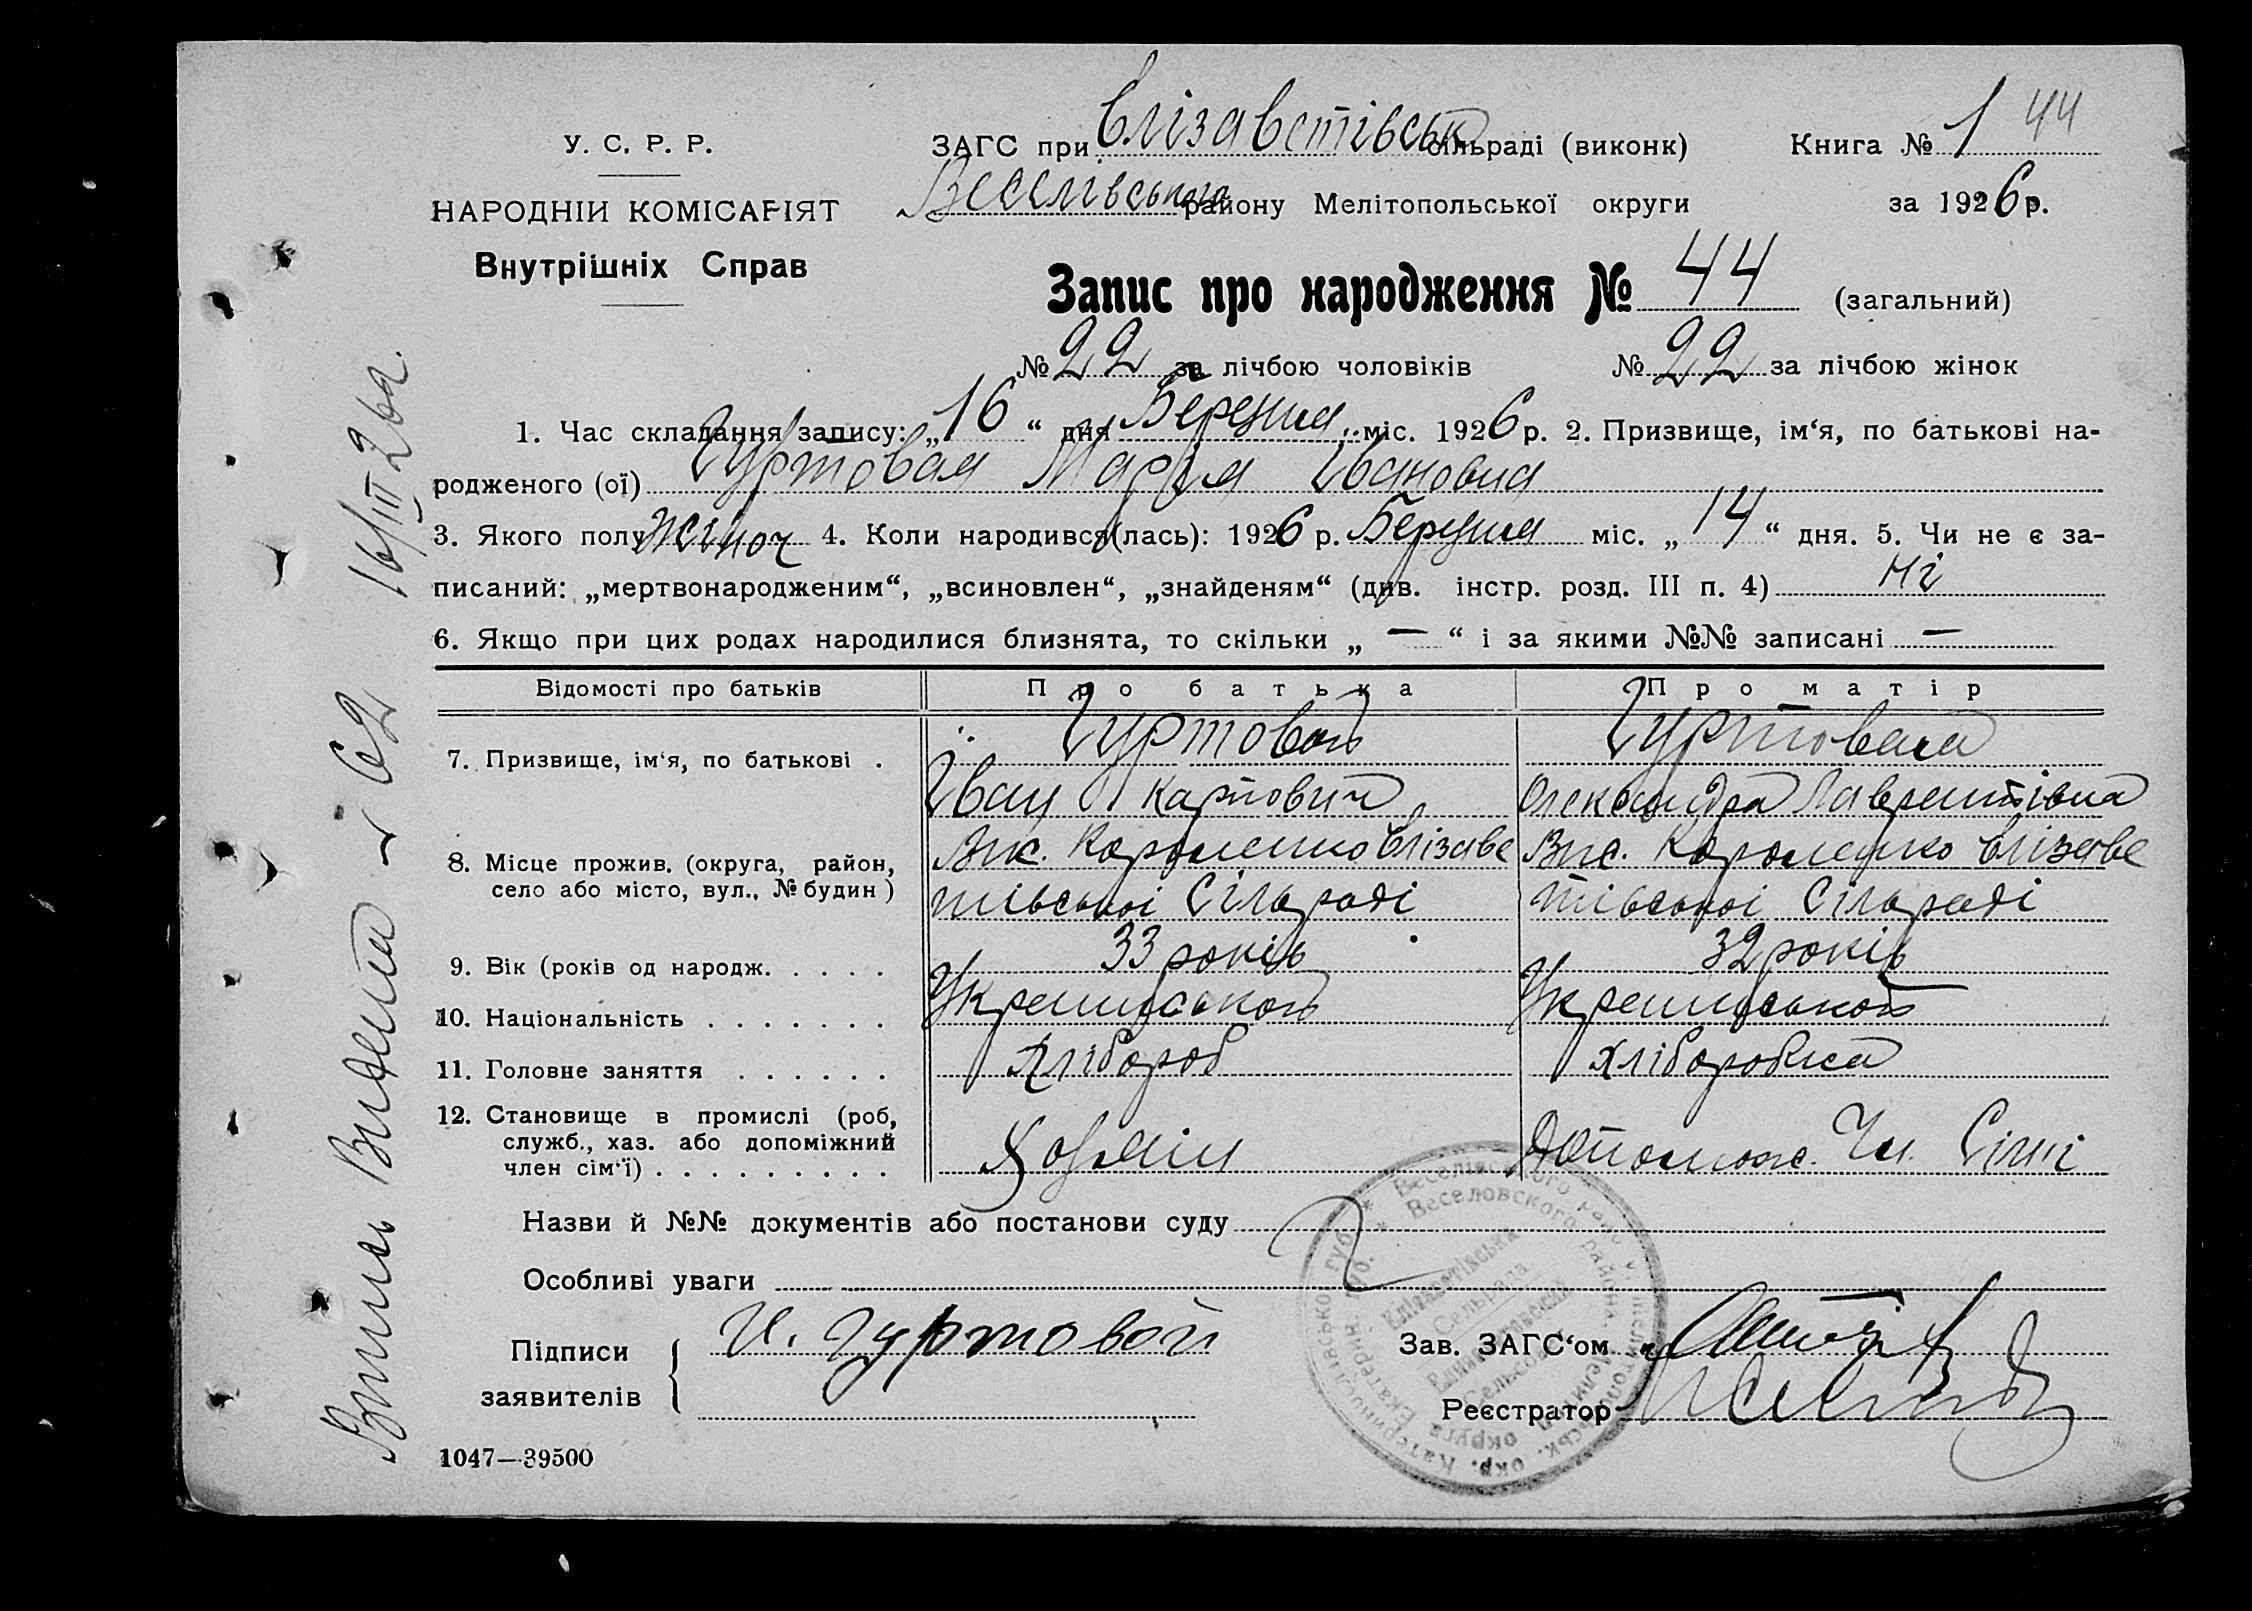 У. С. Р. Р.
НАРОДНІЙ КОМІСАРІЯТ
Внутрішніх Справ
ЗАГС при Єлізаветівськ сільраді (виконк) Книга № 1 44
Веселівського району Мелітопольської округи за 1926 р.
Запис про народження № 44 (загальний)
№ 22 за лічбою чоловіків № 22 за лічбою жінок
1. Час складання запису: „16“ дня Березня міс. 1926 р. 2. Призвище, ім‘я, по батькові на-
родженого (ої) Гуртовая Марія Івановна
3. Якого полу жіноч 4. Коли народився(лась): 1926 р. Березня міс. „14“ дня. 5. Чи не є за-
писаний: „мертвонародженим“, „всиновлен“, „знайденям“ (див. інстр. розд. III п. 4) Ні
6. Якщо при цих родах народилися близнята, то скільки „ — “ і за якими №№ записані —
Відомості про батьків Про батька Про матір
7. Призвище, ім‘я, по батькові . Гуртовой Гуртовая
Іван Карпович Олександра Лаврентівна
8. Місце прожив. (округа, район, село або місто, вул., № будин) Вис. Єлізаве Вис. Єлізаве
тівської Сільраді тівської Сільраді
9. Вік (років од народж. . . . . 33 років 32 років
10. Національність . . . . . . .
11. Головне заняття . . . . . . Хлібороб Хліборобка
12. Становище в промислі (роб,
служб., хаз. або допоміжний
член сім‘ї) . . . . . . . . . Хазяїн Допомож. Чл. Сімї
Назви й №№ документів або постанови суду
Особливі уваги
Підписи заявителів И. Гуртовой
Зав. ЗАГС‘ом
Реєстратор
1047—39500
Випись Видана 62 16/III 26 г.
Веселовского района